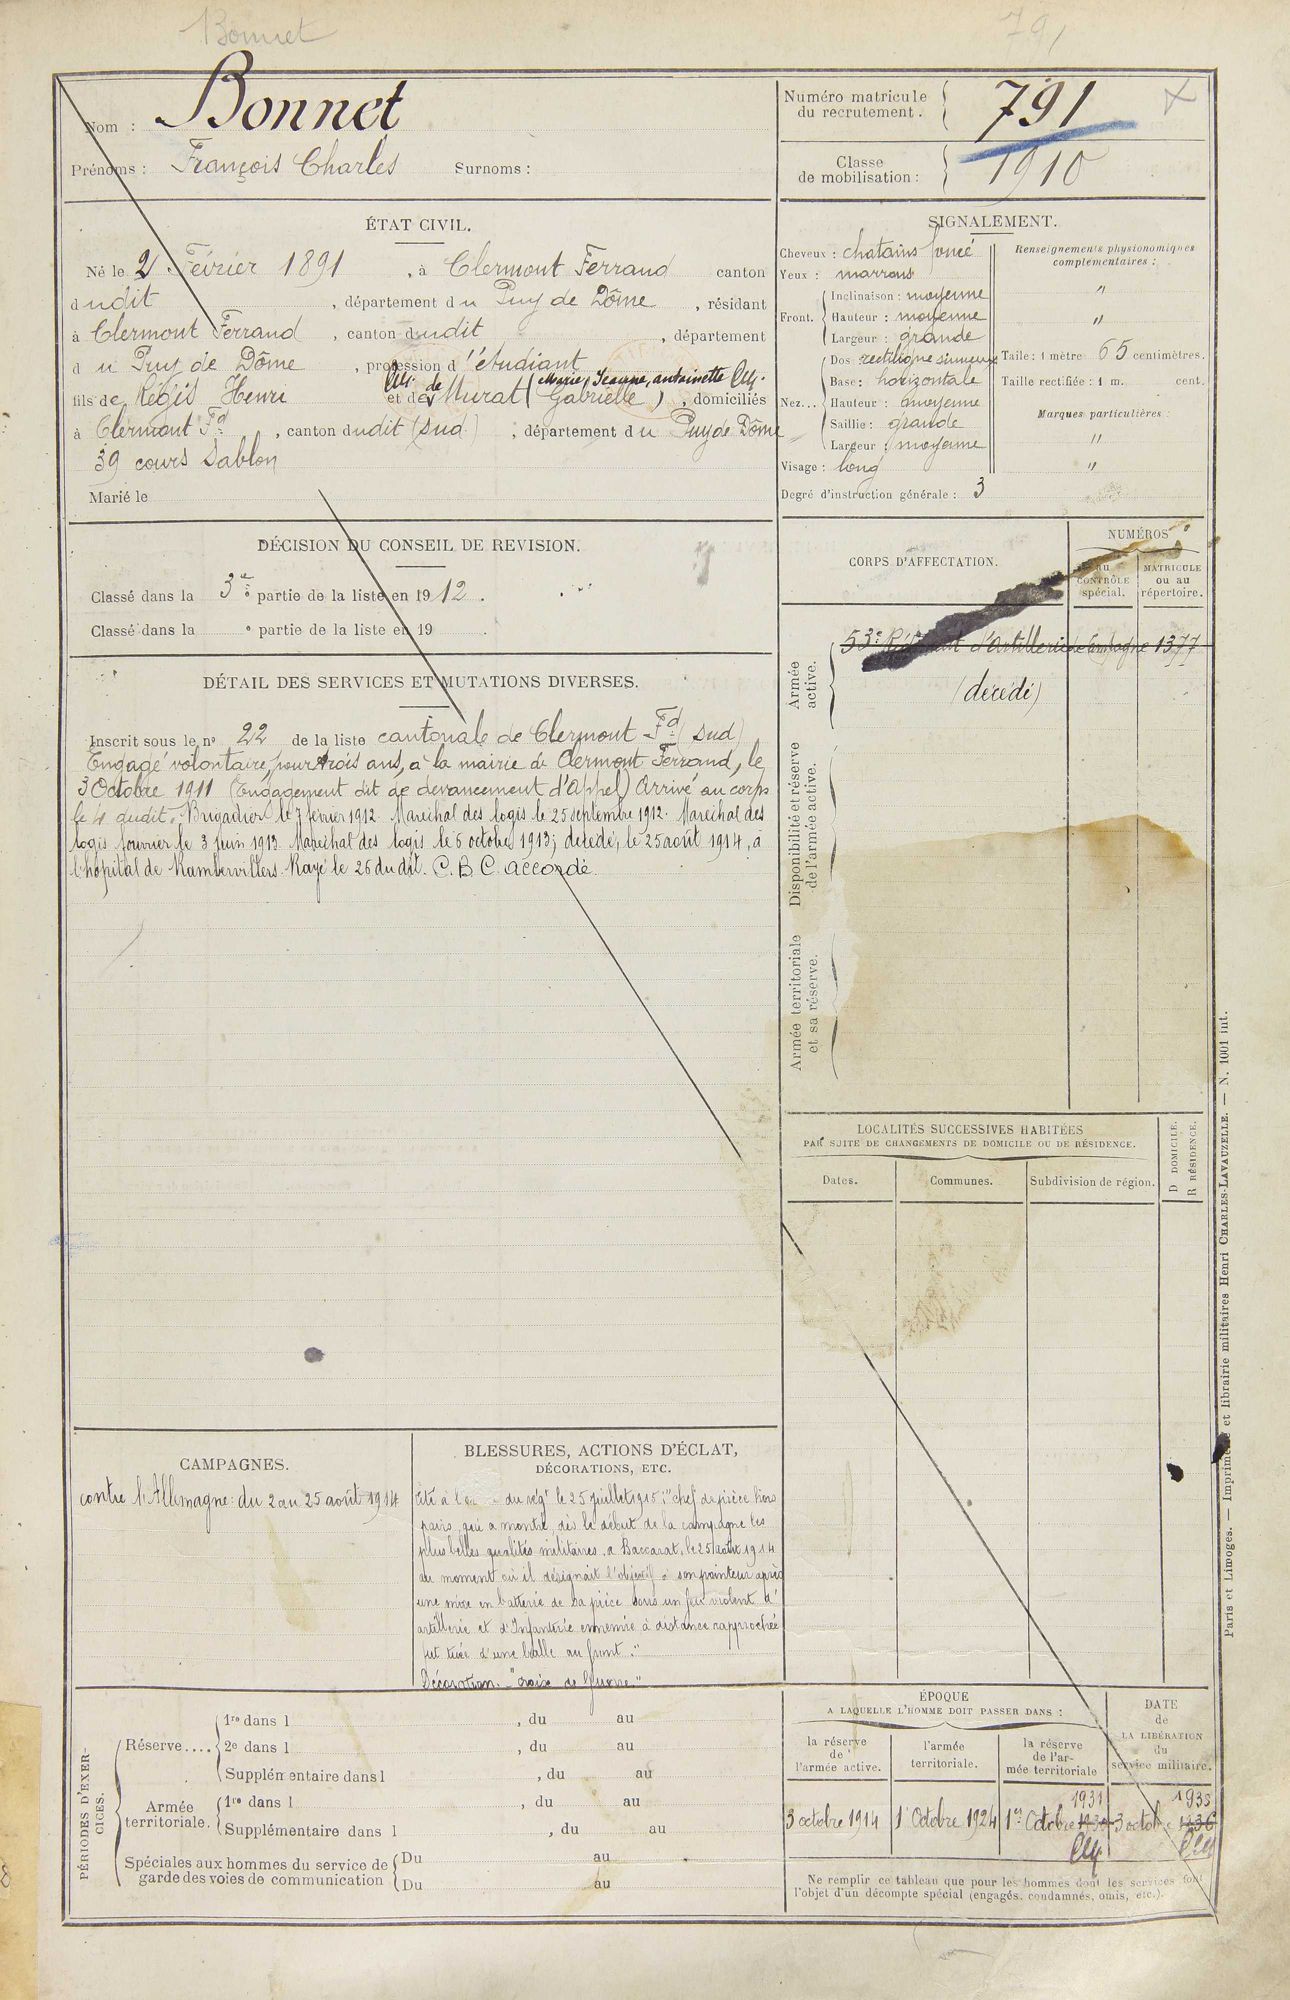 Bonnet
791
Nom : Bonnet
Prénoms : François Charles Surnoms :
Numéro matricule
du recrutement. 791
Classe
de mobilisation : 1910
ÉTAT CIVIL.
Né le 2 Février 1891, à Clermont Ferrand canton
dudit, département du Puy de Dôme, résidant
à Clermont Ferrand, canton dudit, département
du Puy de Dôme, profession d'étudiant
fils de Régis Henri et de de Murat (Marie, Jeanne, antoinette Gabrielle), domiciliés
à Clermont Fd, canton dudit (Sud), département du Puy de Dôme
39 cours Sablon
Marié le
SIGNALEMENT.
Cheveux : chatains foncé
Yeux : marrons
Front. Inclinaison : moyenne
Hauteur : moyenne
Largeur : grande
Nez... Dos rectiligne sinueux
Base : horizontale
Hauteur : moyenne
Saillie : grande
Largeur : moyenne
Visage : long
Degré d'instruction générale : 3
Renseignements physionomiques
complémentaires :
"
"
Taille : 1 mètre 65 centimètres.
Taille rectifiée : 1 m. cent.
Marques particulières :
"
"
DÉCISION DU CONSEIL DE REVISION.
Classé dans la 3e partie de la liste en 1912.
Classé dans la e partie de la liste en 19 .
DÉTAIL DES SERVICES ET MUTATIONS DIVERSES.
Inscrit sous le n° 22 de la liste cantonale de Clermont Fd (Sud)
Engagé volontaire, pour trois ans, à la mairie de Clermont Ferrand, le
3 Octobre 1911 (Engagement dit de devancement d'appel) Arrivé au corps
le 4 dudit. Brigadier le 7 février 1912. Maréchal des logis le 25 septembre 1912. Maréchal des
logis fourrier le 3 juin 1913. Maréchal des logis le 6 octobre 1913; décédé, le 25 août 1914, à
l'hôpital de Rambervillers. Rayé le 26 du dit. C.B.C. accordé.
CORPS D'AFFECTATION.
NUMÉROS
DU
CONTRÔLE
spécial.
MATRICULE
ou au
répertoire.
Armée
active.
53e Régiment d'artillerie de Campagne 1377
(décédé)
Disponibilité et réserve
de l'armée active.
Armée territoriale
et sa réserve.
LOCALITÉS SUCCESSIVES HABITÉES
PAR SUITE DE CHANGEMENTS DE DOMICILE OU DE RÉSIDENCE.
Dates.
Communes.
Subdivision de région.
D DOMICILE.
R RÉSIDENCE.
CAMPAGNES.
contre l'Allemagne : du 2 au 25 août 1914
BLESSURES, ACTIONS D'ÉCLAT,
DÉCORATIONS, ETC.
Cité à l' du régt le 25 juillet 1915 : "chef de pièce hors
pairs, qui a montré, dès le début de la campagne les
plus belles qualités militaires. a Baccarat, le 25 août 1914
au moment où il désignait l'objectif à son pointeur après
une mise en batterie de sa pièce sous un feu violent d'
artillerie et d'Infanterie ennemie à distance rapprochée
fut tué d'une balle au front."
Décoration. "croix de Guerre"
PÉRIODES D'EXERCICES.
Réserve.... 1re dans l , du au
2e dans l , du au
Supplémentaire dans l , du au
Armée
territoriale. 1re dans l , du au
Supplémentaire dans l , du au
Spéciales aux hommes du service de
garde des voies de communication
Du au
Du au
ÉPOQUE
A LAQUELLE L'HOMME DOIT PASSER DANS :
la réserve
de
l'armée active.
l'armée
territoriale.
la réserve
de l'ar-
mée territoriale
DATE
de
LA LIBÉRATION
du
service militaire.
3 octobre 1914
1 Octobre 1924
1er Octobre 1930 1931
3 octobre 1936 1938
Ne remplir ce tableau que pour les hommes dont les services font
l'objet d'un décompte spécial (engagés, condamnés, omis, etc.).
Paris et Limoges. — Imprimerie et librairie militaires Henri CHARLES-LAVAUZELLE. — N. 1001 int.